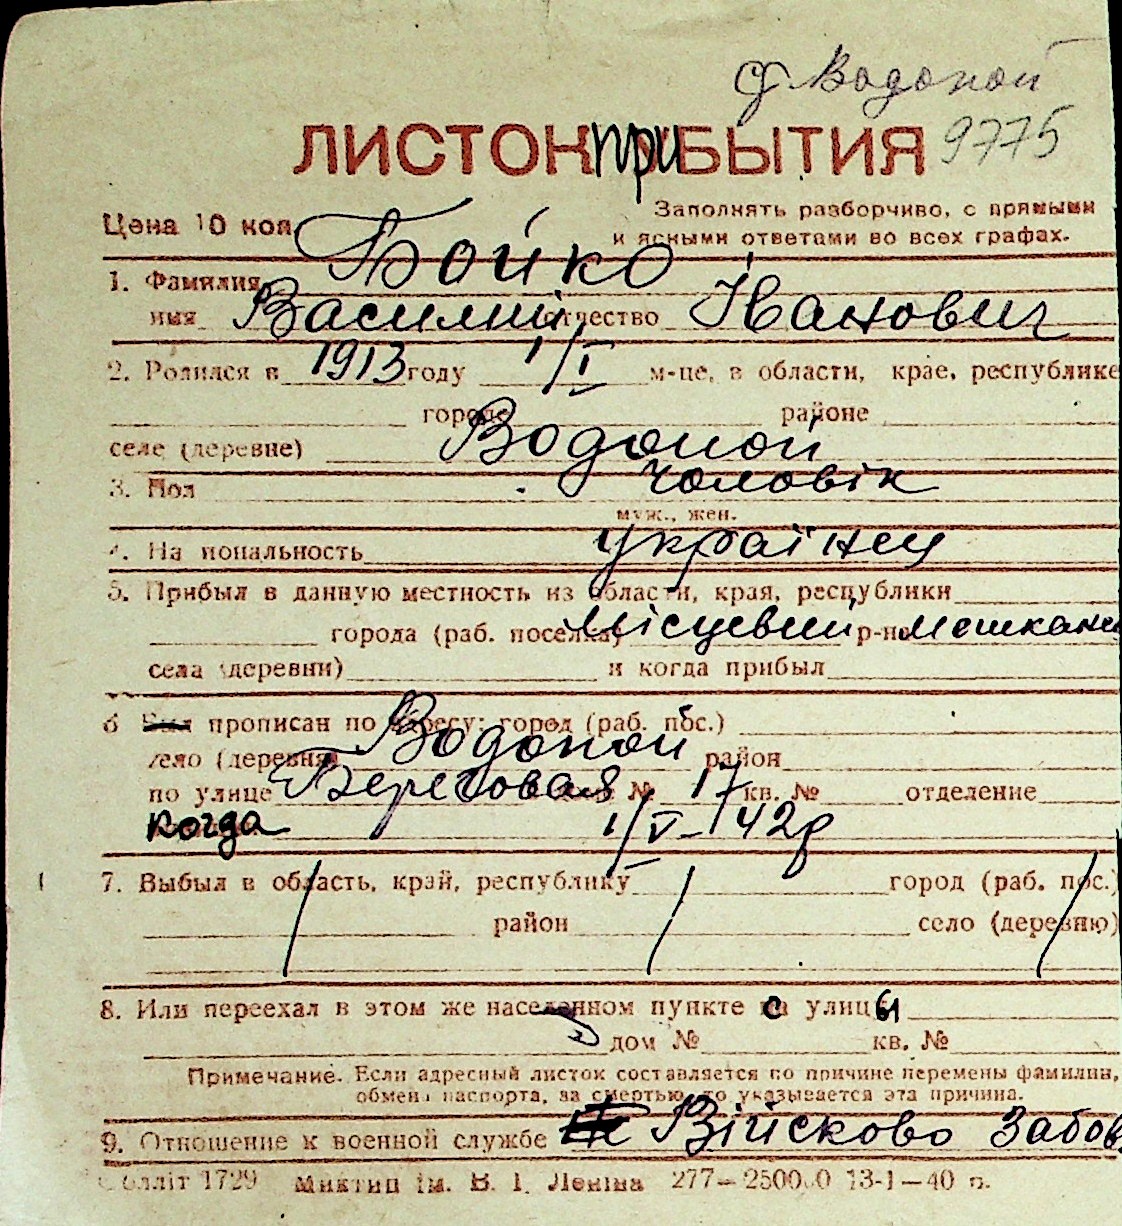 с. Водопой
ЛИСТОК при БЫТИЯ 9775
Цена 10 коп. Заполнять разборчиво, с прямыми
и ясными ответами во всех графах.
1. Фамилия Бойко
имя Василий отчество Іванович
2. Родился в 1913 году 1/I м-це, в области, крае, республике
городе районе
селе (деревне) Водопой
3. Пол чоловік
муж., жен.
4. Национальность українец
5. Прибыл в данную местность из области, края, республики
города (раб. поселка) Місцевий р-на мешкане
села (деревни) и когда прибыл
6 Был прописан по адресу: город (раб. пос.)
село (деревня) Водопой район
по улице Береговая № 17 кв. № отделение
когда 1/V-42р
7. Выбыл в область, край, республику город (раб. пос.)
район село (деревню)
8. Или переехал в этом же населенном пункте с улицы
дом № кв. №
Примечание. Если адресный листок составляется по причине перемены фамилии,
обмена паспорта, за смертью, то указывается эта причина.
9. Отношение к военной службе Військово Забов
Облліт 1729 Миктип ім. В. І. Леніна 277—250000 13-1—40 р.